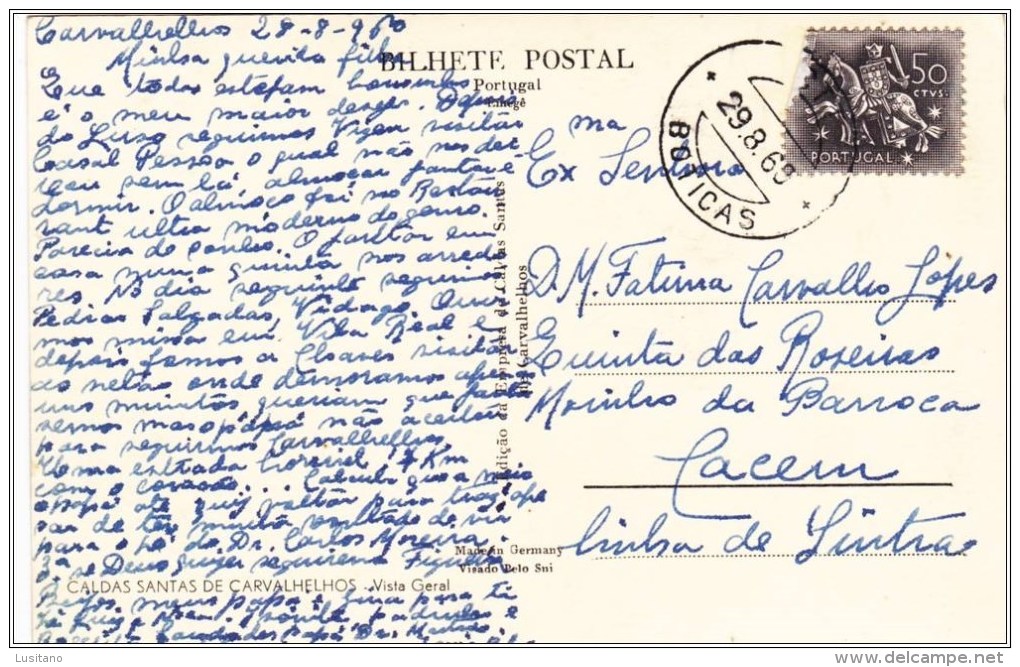 Carvalhelhos 28-8-960
Minha querida filha
Que todos estejam bonsinhos
é o meu maior desejo. Depois
do Luso seguimos Viseu visitar
Casal Pessôa o qual não nos dei
xou sem lá, almoçar jantar e
dormir. O almoço foi no Restau
rant ultra moderno do genro.
Parecia de sonho. O jantar em
casa numa quinta nos arredo
res. No dia seguinte seguimos
Pedras Salgadas, Vidago. Ouvi
mos missa em Vila Real e
depois fomos a Chaves visitar
as netas onde demoramos apenas
uns minutos queriam que jantas
semos mas o pápá não aceitou
para seguirmos Carvalhelhos.
Uma estrada horrivel, 7 Km
com o coração... Calculo que a mais
o pápá até quiz voltar para traz ape
sar de ter muita vontade de vir
para o pé do Dr. Carlos Moreira.
3ª se Deus quizer seguiremos Figueira
Beijos meus papá e Guia para ti
Saudades papá Dr.
BILHETE POSTAL
Portugal
50
CTVS.
PORTUGAL
29.8.60
BOTICAS
Ex ma Senhora
D. M. Fatima Carvalho Lopes
Quinta das Roseiras
Moinho da Barroca
Cacem
linha de Sintra
Edição da Empresa de Caldas Santas
de Carvalhelhos
Made in Germany
Visado Pelo Sni
CALDAS SANTAS DE CARVALHELHOS - Vista Geral
Lusitano
www.delcampe.net